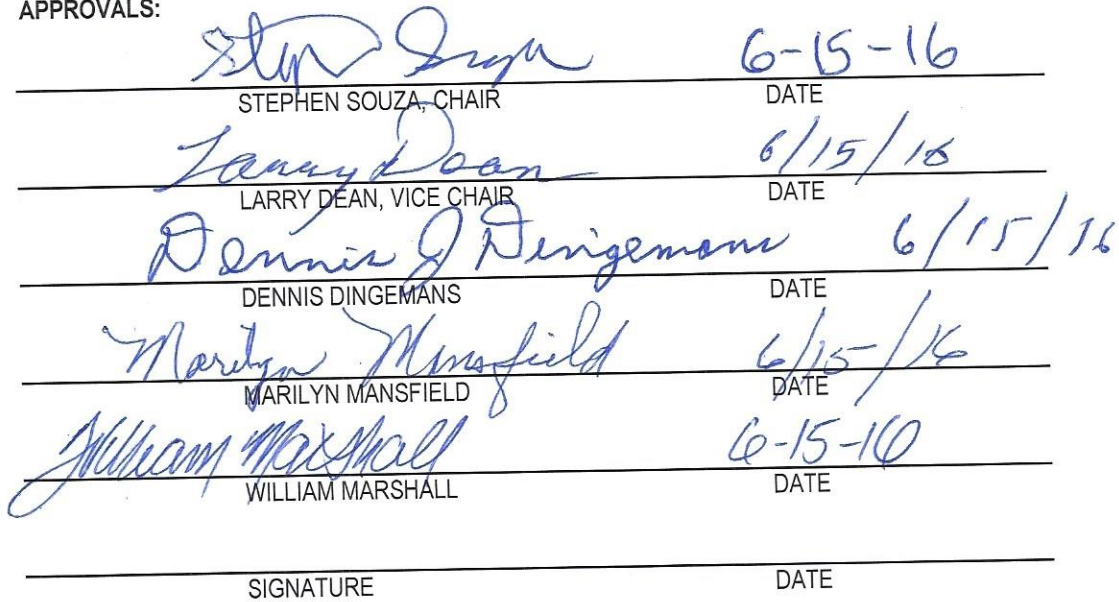 APPROVALS:
Stephen Souza 6-15-16
STEPHEN SOUZA, CHAIR DATE
Larry Dean 6/15/16
LARRY DEAN, VICE CHAIR DATE
Dennis J Dingemans 6/15/16
DENNIS DINGEMANS DATE
Marilyn Mansfield 6/15/16
MARILYN MANSFIELD DATE
William Marshall 6-15-16
WILLIAM MARSHALL DATE
SIGNATURE DATE